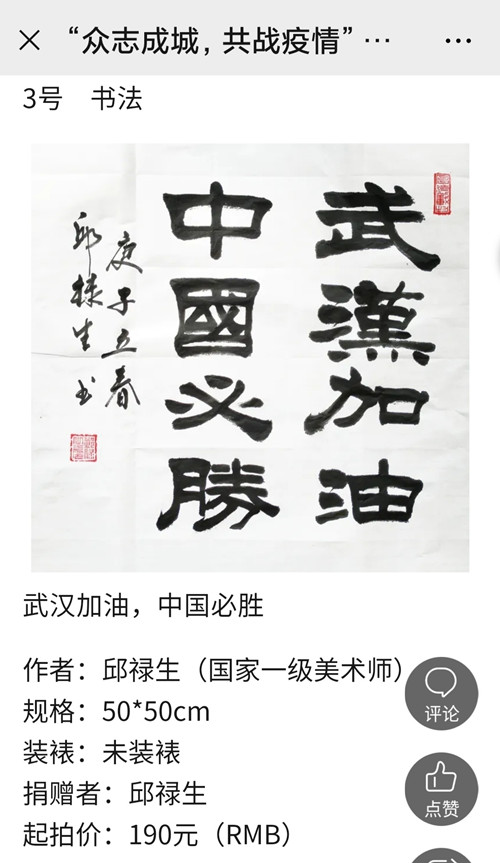 “众志成城，共战疫情”…
3号 书法
武漢加油
中國必勝
庚子立春
邱禄生书
武汉加油，中国必胜
作者：邱禄生（国家一级美术师）
规格：50*50cm
装裱：未装裱
捐赠者：邱禄生
起拍价：190元（RMB）
评论
点赞